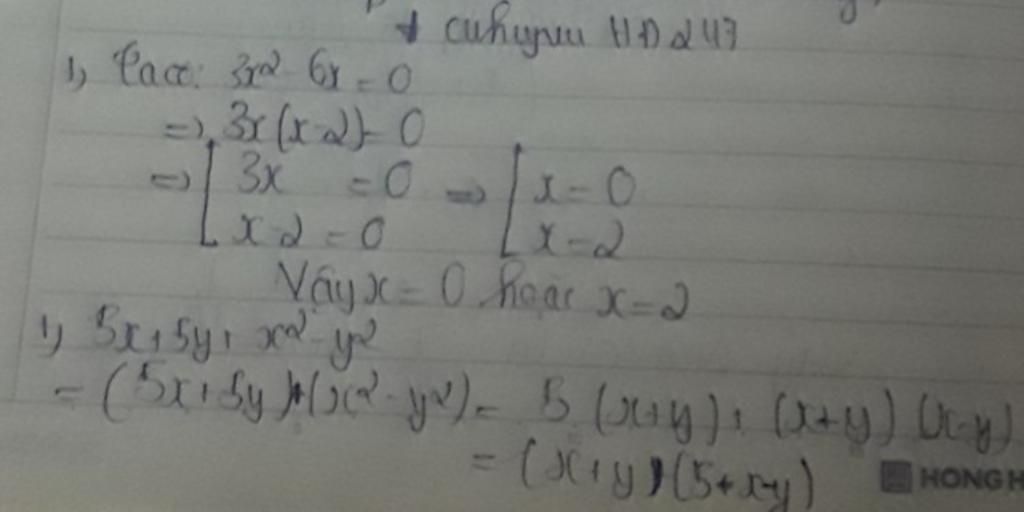 1, Ta có: 3x² - 6x = 0
=> 3x(x-2) = 0
=> [ 3x = 0 => [ x = 0
x-2 = 0 x = 2
Vậy x = 0 hoặc x = 2
1, 5x + 5y + x² - y²
= (5x + 5y) + (x² - y²) = 5 (x+y) + (x+y) (x-y)
= (x+y)(5+x-y)
HONG H